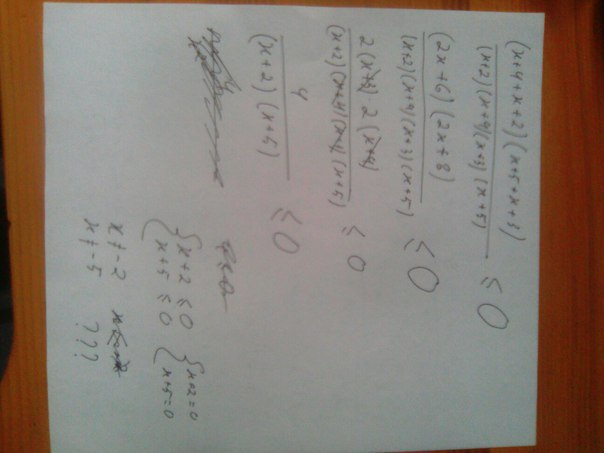 (x+4+x+2)(x+5+x+3)
(x+2)(x+4)(x+3)(x+5) ≤ 0
(2x+6)(2x+8)
(x+2)(x+4)(x+3)(x+5) ≤ 0
2(x+3)·2(x+4)
(x+2)(x+4)(x+3)(x+5) ≤ 0
4
(x+2)(x+5) ≤ 0
{x+2 ≤ 0 {x+2=0
x+5 ≤ 0 x+5=0
x≠-2
x≠-5 ???